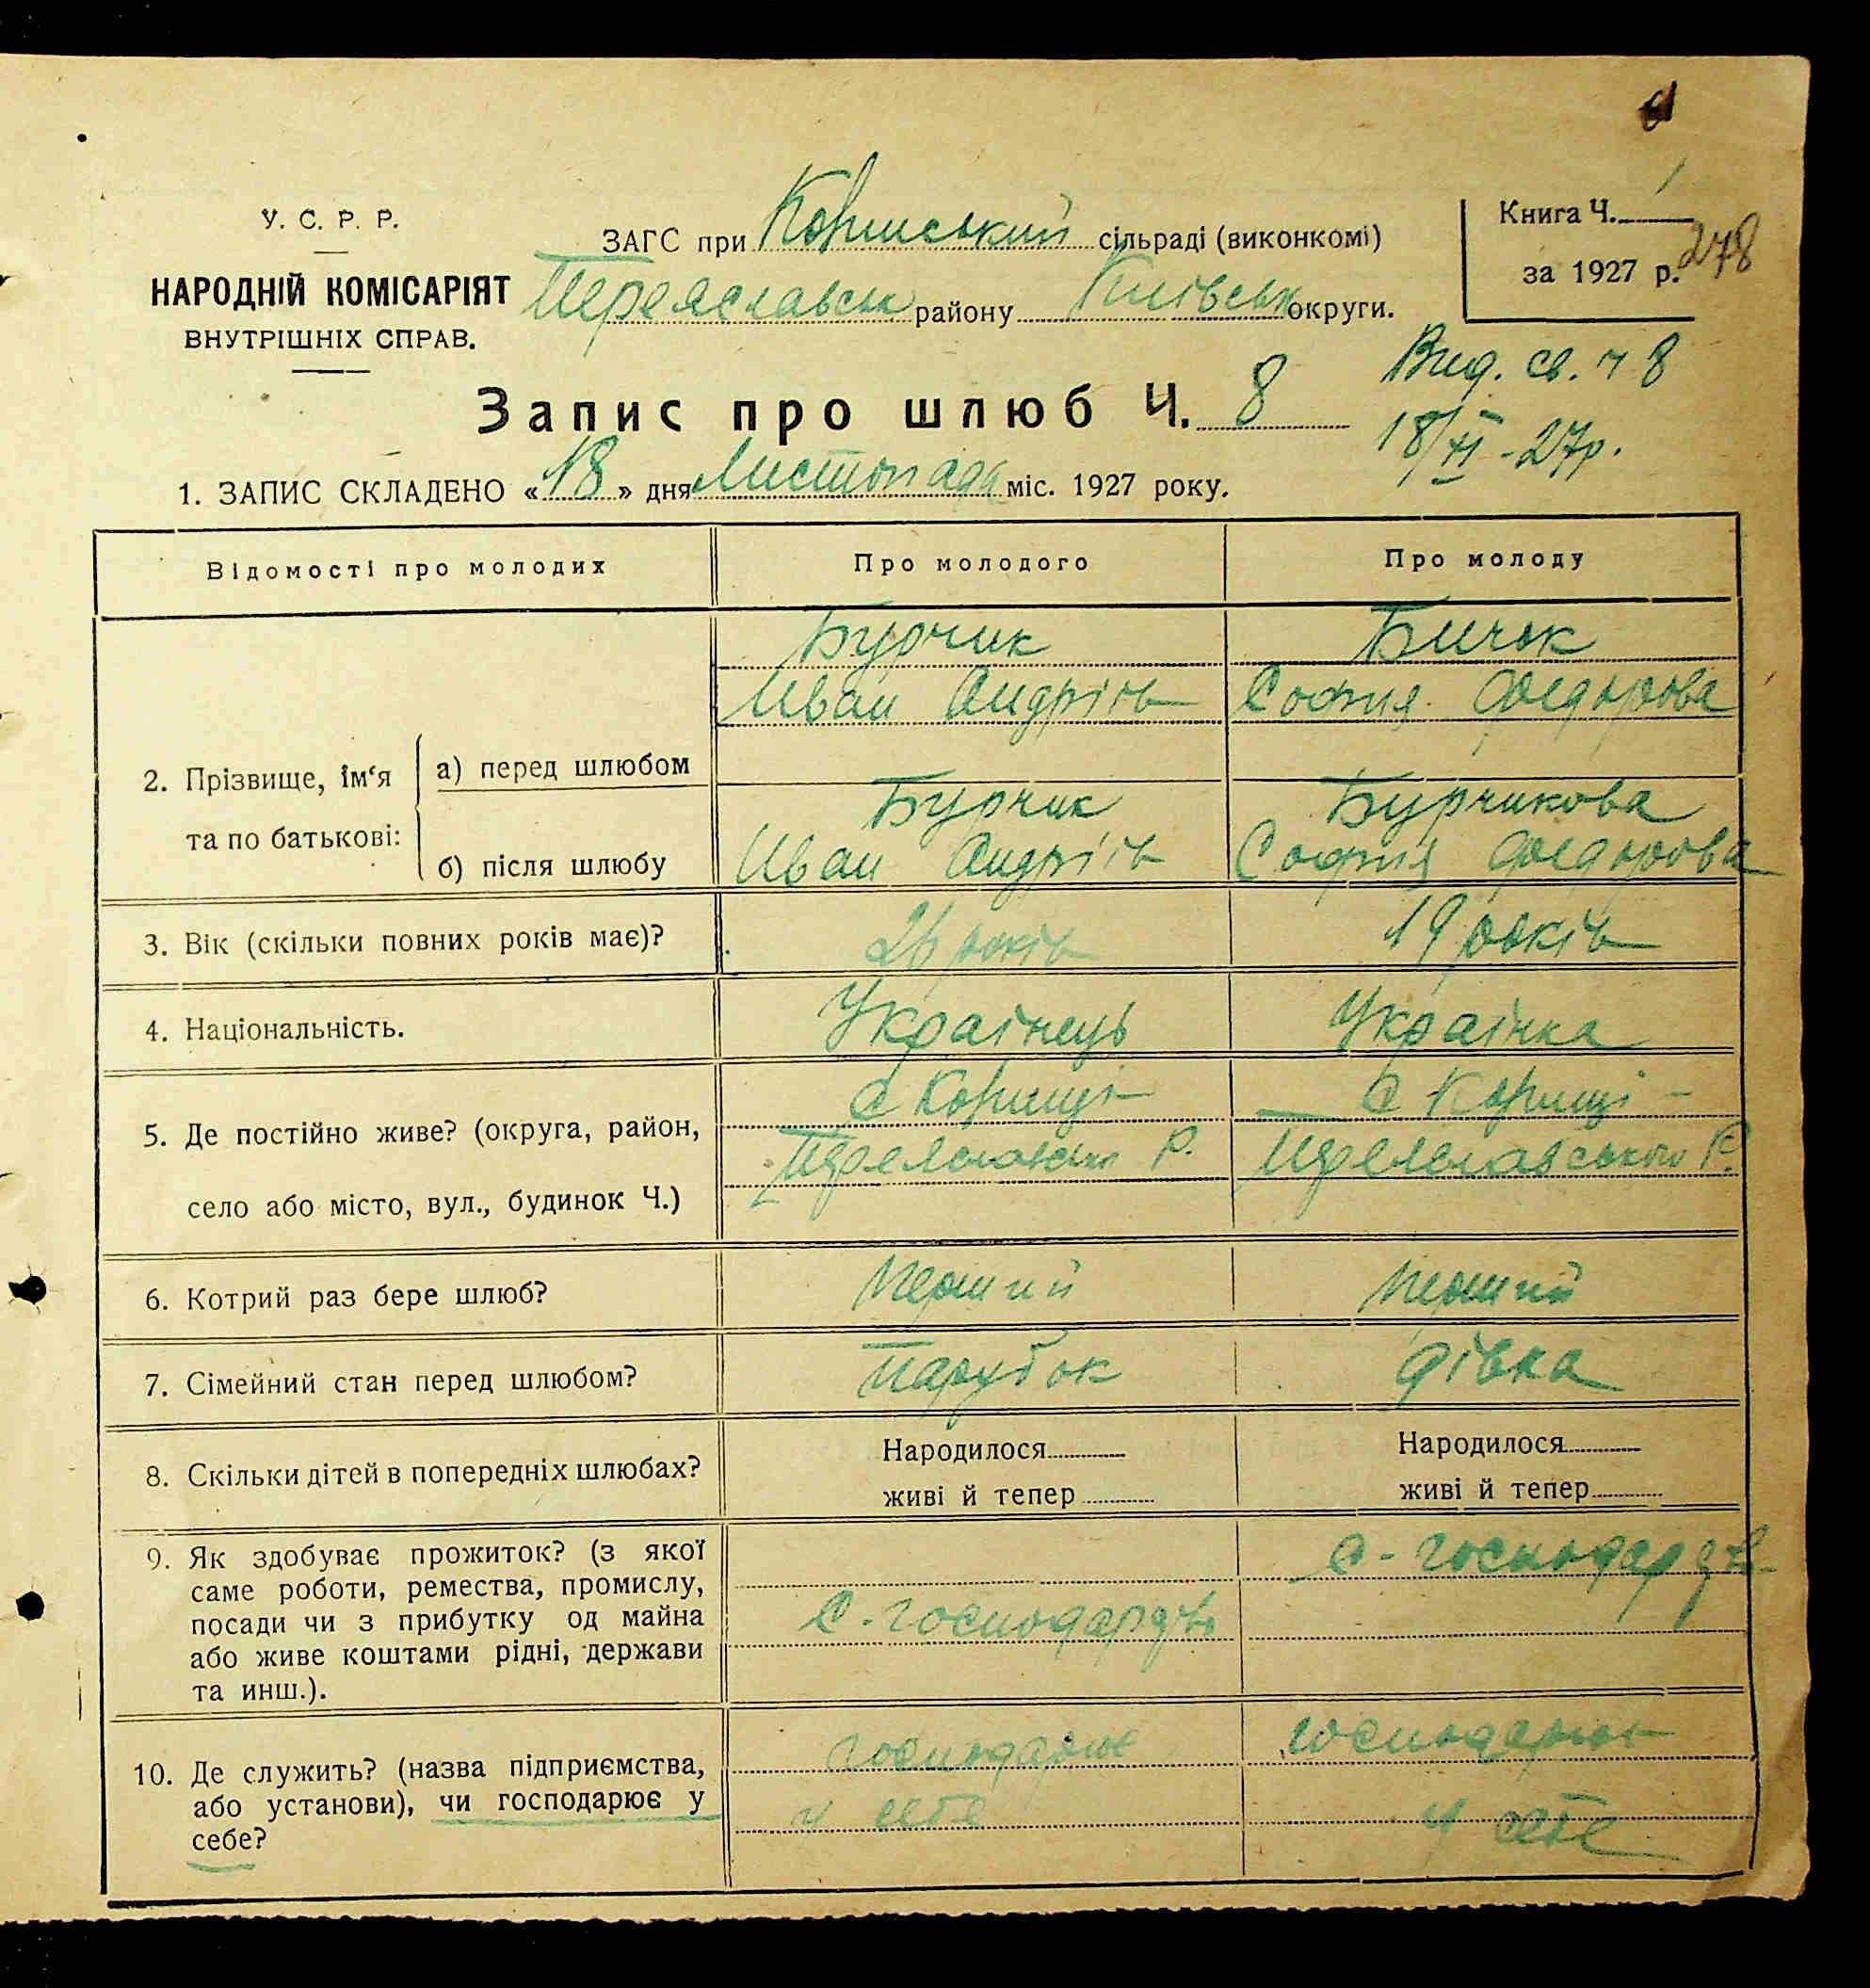 У. С. Р. Р.
НАРОДНІЙ КОМІСАРІЯТ
ВНУТРІШНІХ СПРАВ.
ЗАГС при сільраді (виконкомі)
Переяславськ району Київськ округи.
Книга Ч. 1
278
за 1927 р.
Запис про шлюб Ч. 8
Вид. св. ч 8
18/XI - 27р.
1. ЗАПИС СКЛАДЕНО «18» дня Листопада міс. 1927 року.
Відомості про молодих Про молодого Про молоду
2. Прізвище, ім‘я та по батькові:
а) перед шлюбом
Бурчик Бичок
Иван Андрієв София Федорова
б) після шлюбу
Бурчик Бурчикова
Иван Андрієв София Федорова
3. Вік (скільки повних років має)? 26 років 19 років
4. Національність. Украінець Украінка
5. Де постійно живе? (округа, район,
село або місто, вул., будинок Ч.)
с с
Р. Переяславського Р.
6. Котрий раз бере шлюб? Перший Перший
7. Сімейний стан перед шлюбом? Парубок дівка
8. Скільки дітей в попередніх шлюбах?
Народилося Народилося
живі й тепер живі й тепер
9. Як здобуває прожиток? (з якої
саме роботи, ремества, промислу,
посади чи з прибутку од майна
або живе коштами рідні, держави
та инш.).
10. Де служить? (назва підприємства,
або установи), чи господарює у
себе?
господарює господарює
у себе у себе